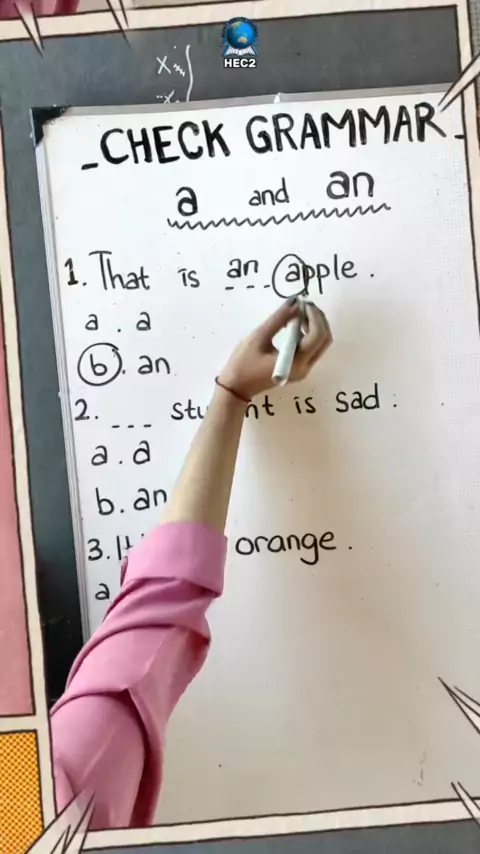 HEC2
CHECK GRAMMAR
a and an
1. That is an apple.
a. a
b. an
2. --- is sad.
a. a
b. an
3. orange.
a